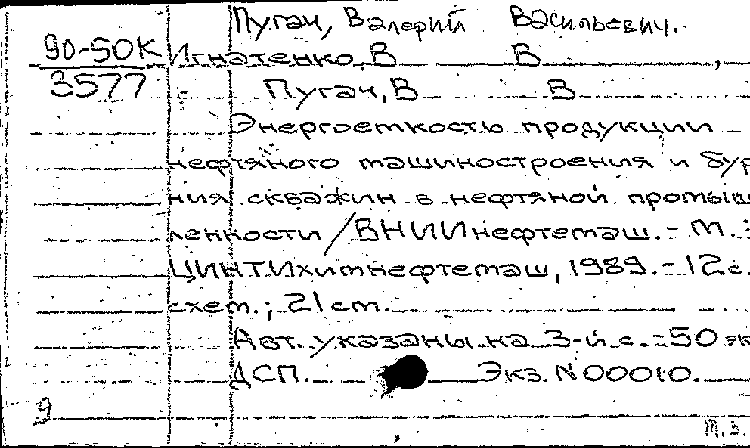 Пугач, Валерий Васильевич.
90-50К Игнатенко, В В ,
3577 Пугач, В В
Энергоемкость продукции
нефтяного машиностроения и бур
ния скважин в нефтяной промыш
ленности / ВНИИнефтемаш. - М.:
ЦИНТИхимнефтемаш, 1989. - 12с.
схем.; 21 см.
Авт. указаны на 3-й с. - 50 эк
ДСП. Экз. N 00010.
9
т. з.